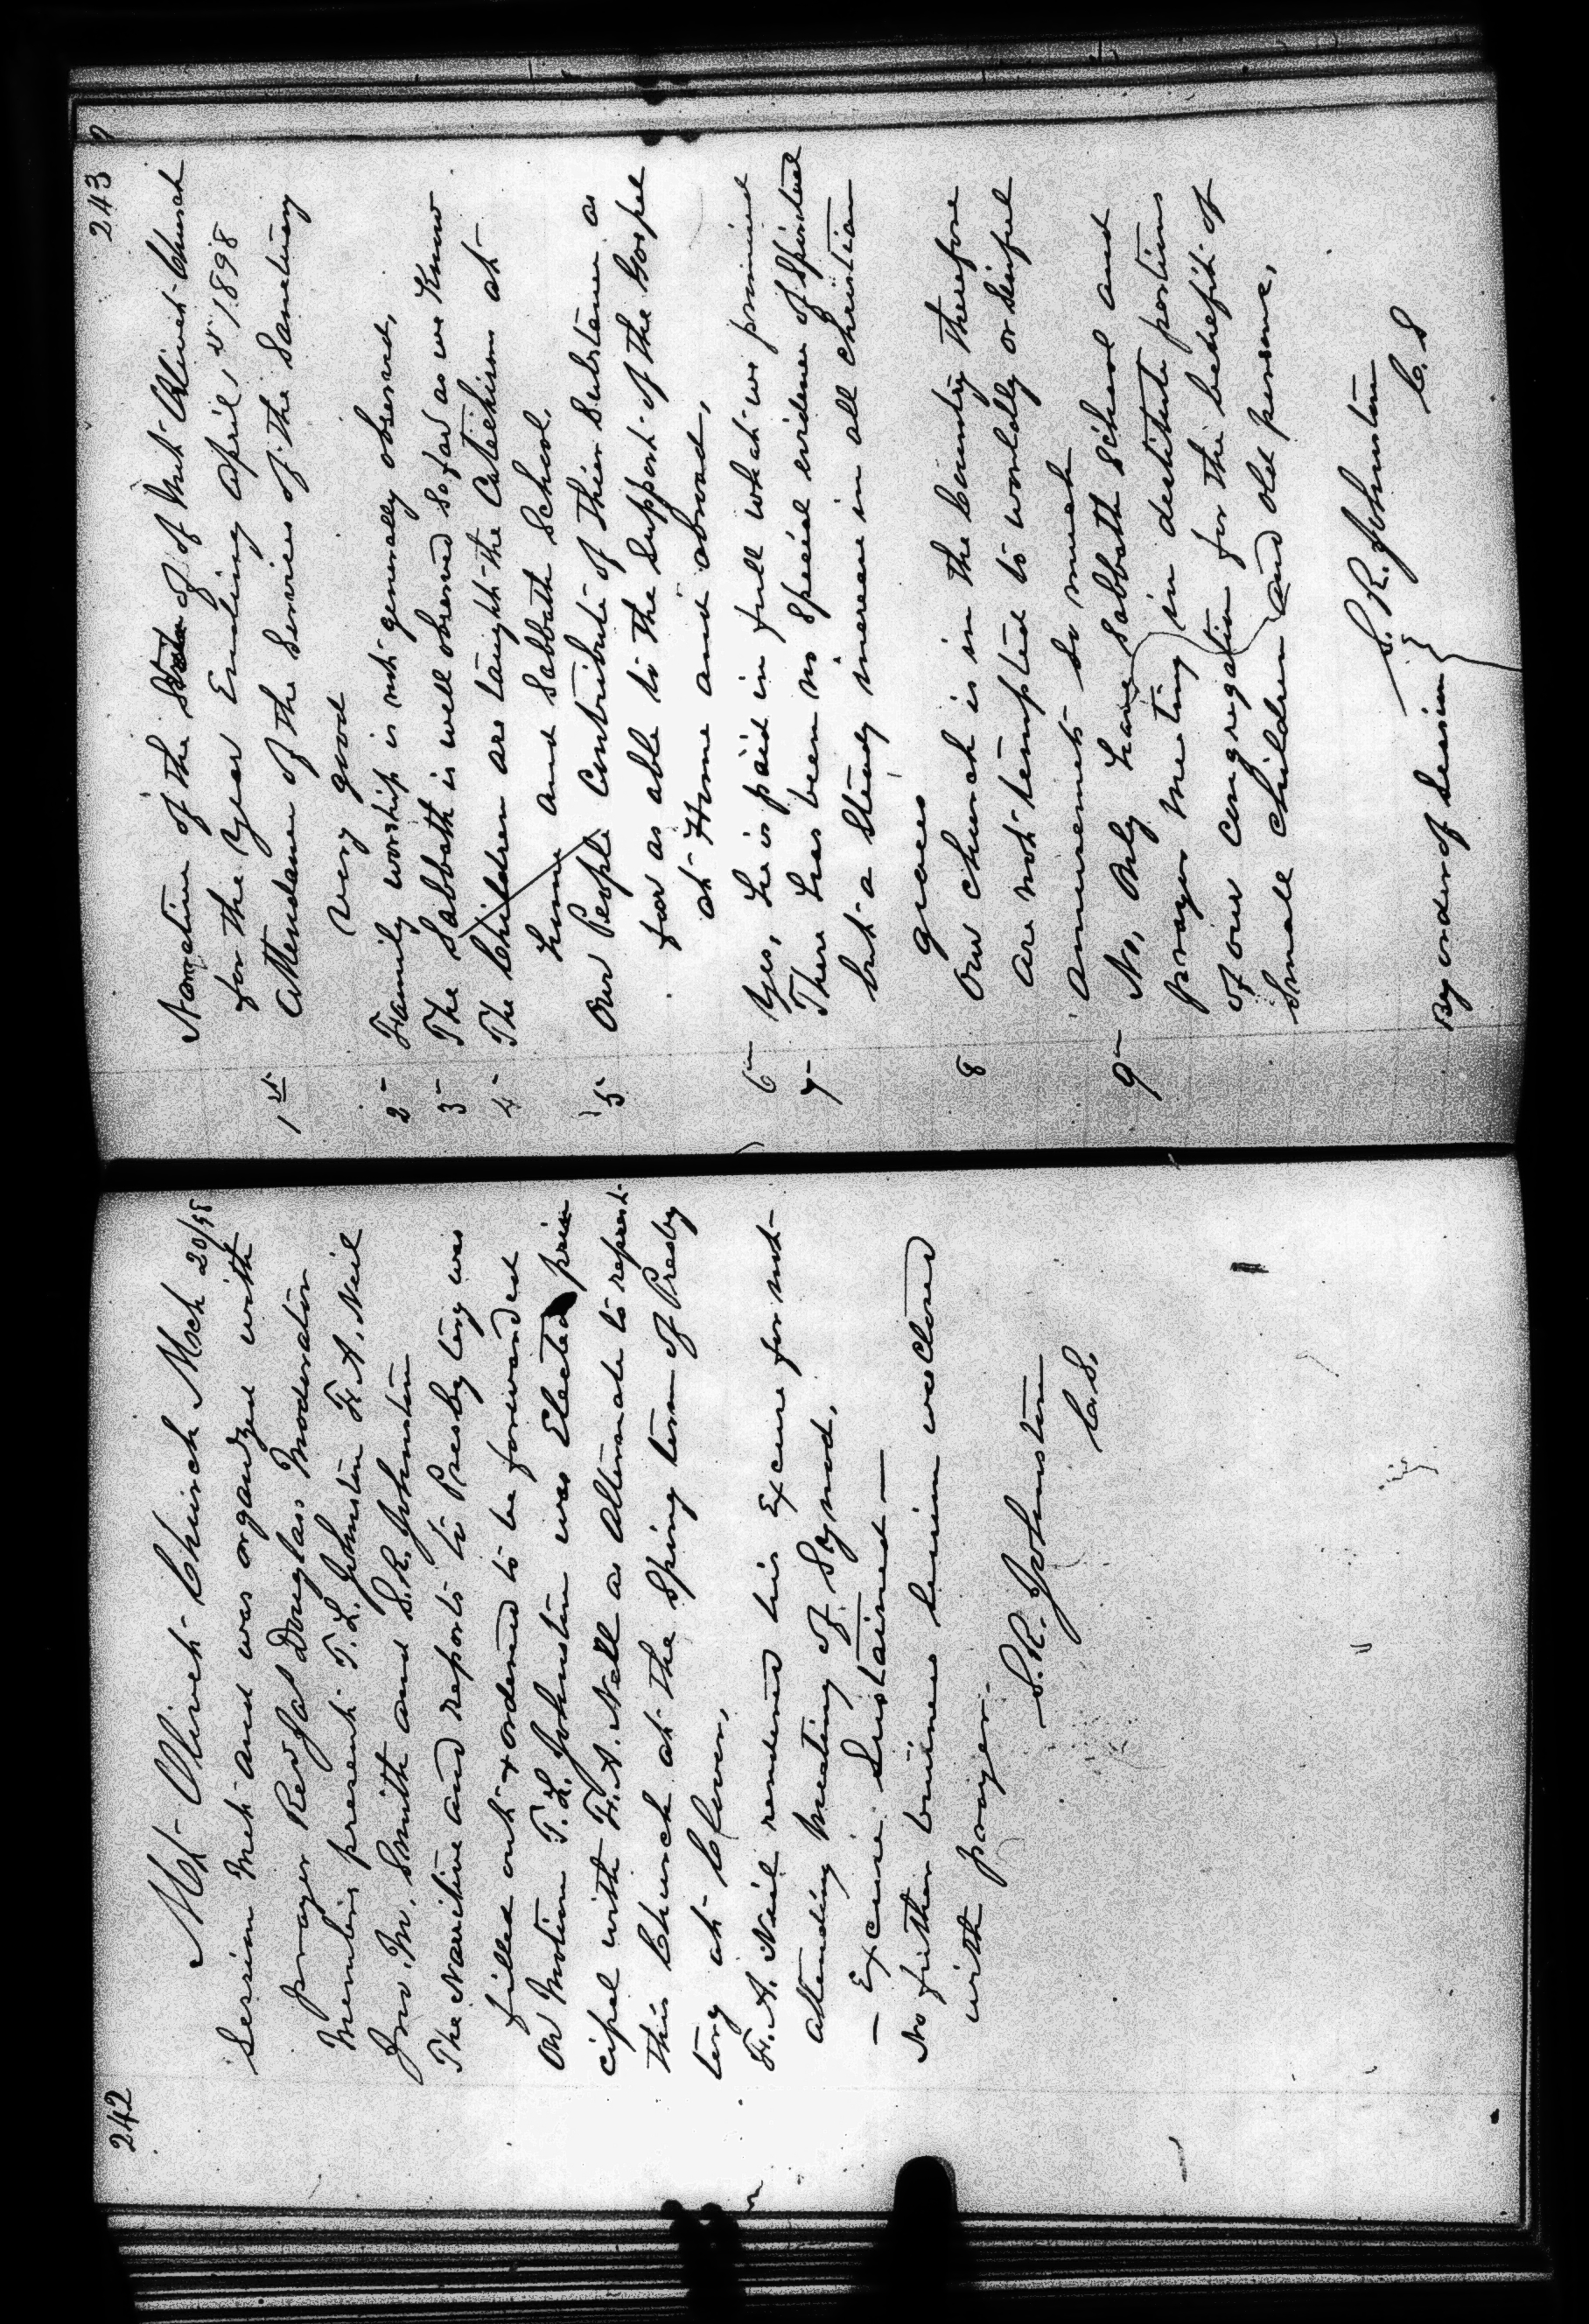 242
Mt Olivet Church Mch 20/98
Session Met and was organized with
prayer Rev Jas Douglas Moderator
Members present T. L. Johnston F. A. Neil
Jno. M. Smith and S. R. Johnston
The Naritive and reports to Presbytery was
filled out & ordered to be forwarded
On Motion T. L. Johnston was Elected prin
cipal with F. A. Neil as Alternate to represt
this Church at the Spring term of Presby
tery at Clover,
F. A. Neil rendered his Excuse for not
attending Meeting of Synod,
— Excuse Sustained —
No futher buisness Session was Closed
with prayer.
S. R. Johnston
C. S.
243
Naration of the State of Mt Olivet Church
for the Year Ending April 1st 1898
1st Attendance of the Services of the Sanctuary
Very good
2 Family worship is not generally observed,
3 The Sabbath is well observed So far as we Know
4 The Children are taught the Catechism at
home and Sabbath School,
5 Our People Contribute of thier Substance as
far as able to the Support of the Gospel
at Home and abroad,
6 Yes, he is paid in full what we promised
7 There has been no Special evidence of Spiritual
but a Steady increase in all Christian
graces
8 Our Church is in the Country therefore
are not tempted to worldly or Sinful
amusements So much
9 No, Only have Sabbath School and
prayer Meeting in destitute portions
of our congregation for the benefit of
Small Children and old persons,
S. R. Johnston
By order of Session } C. S